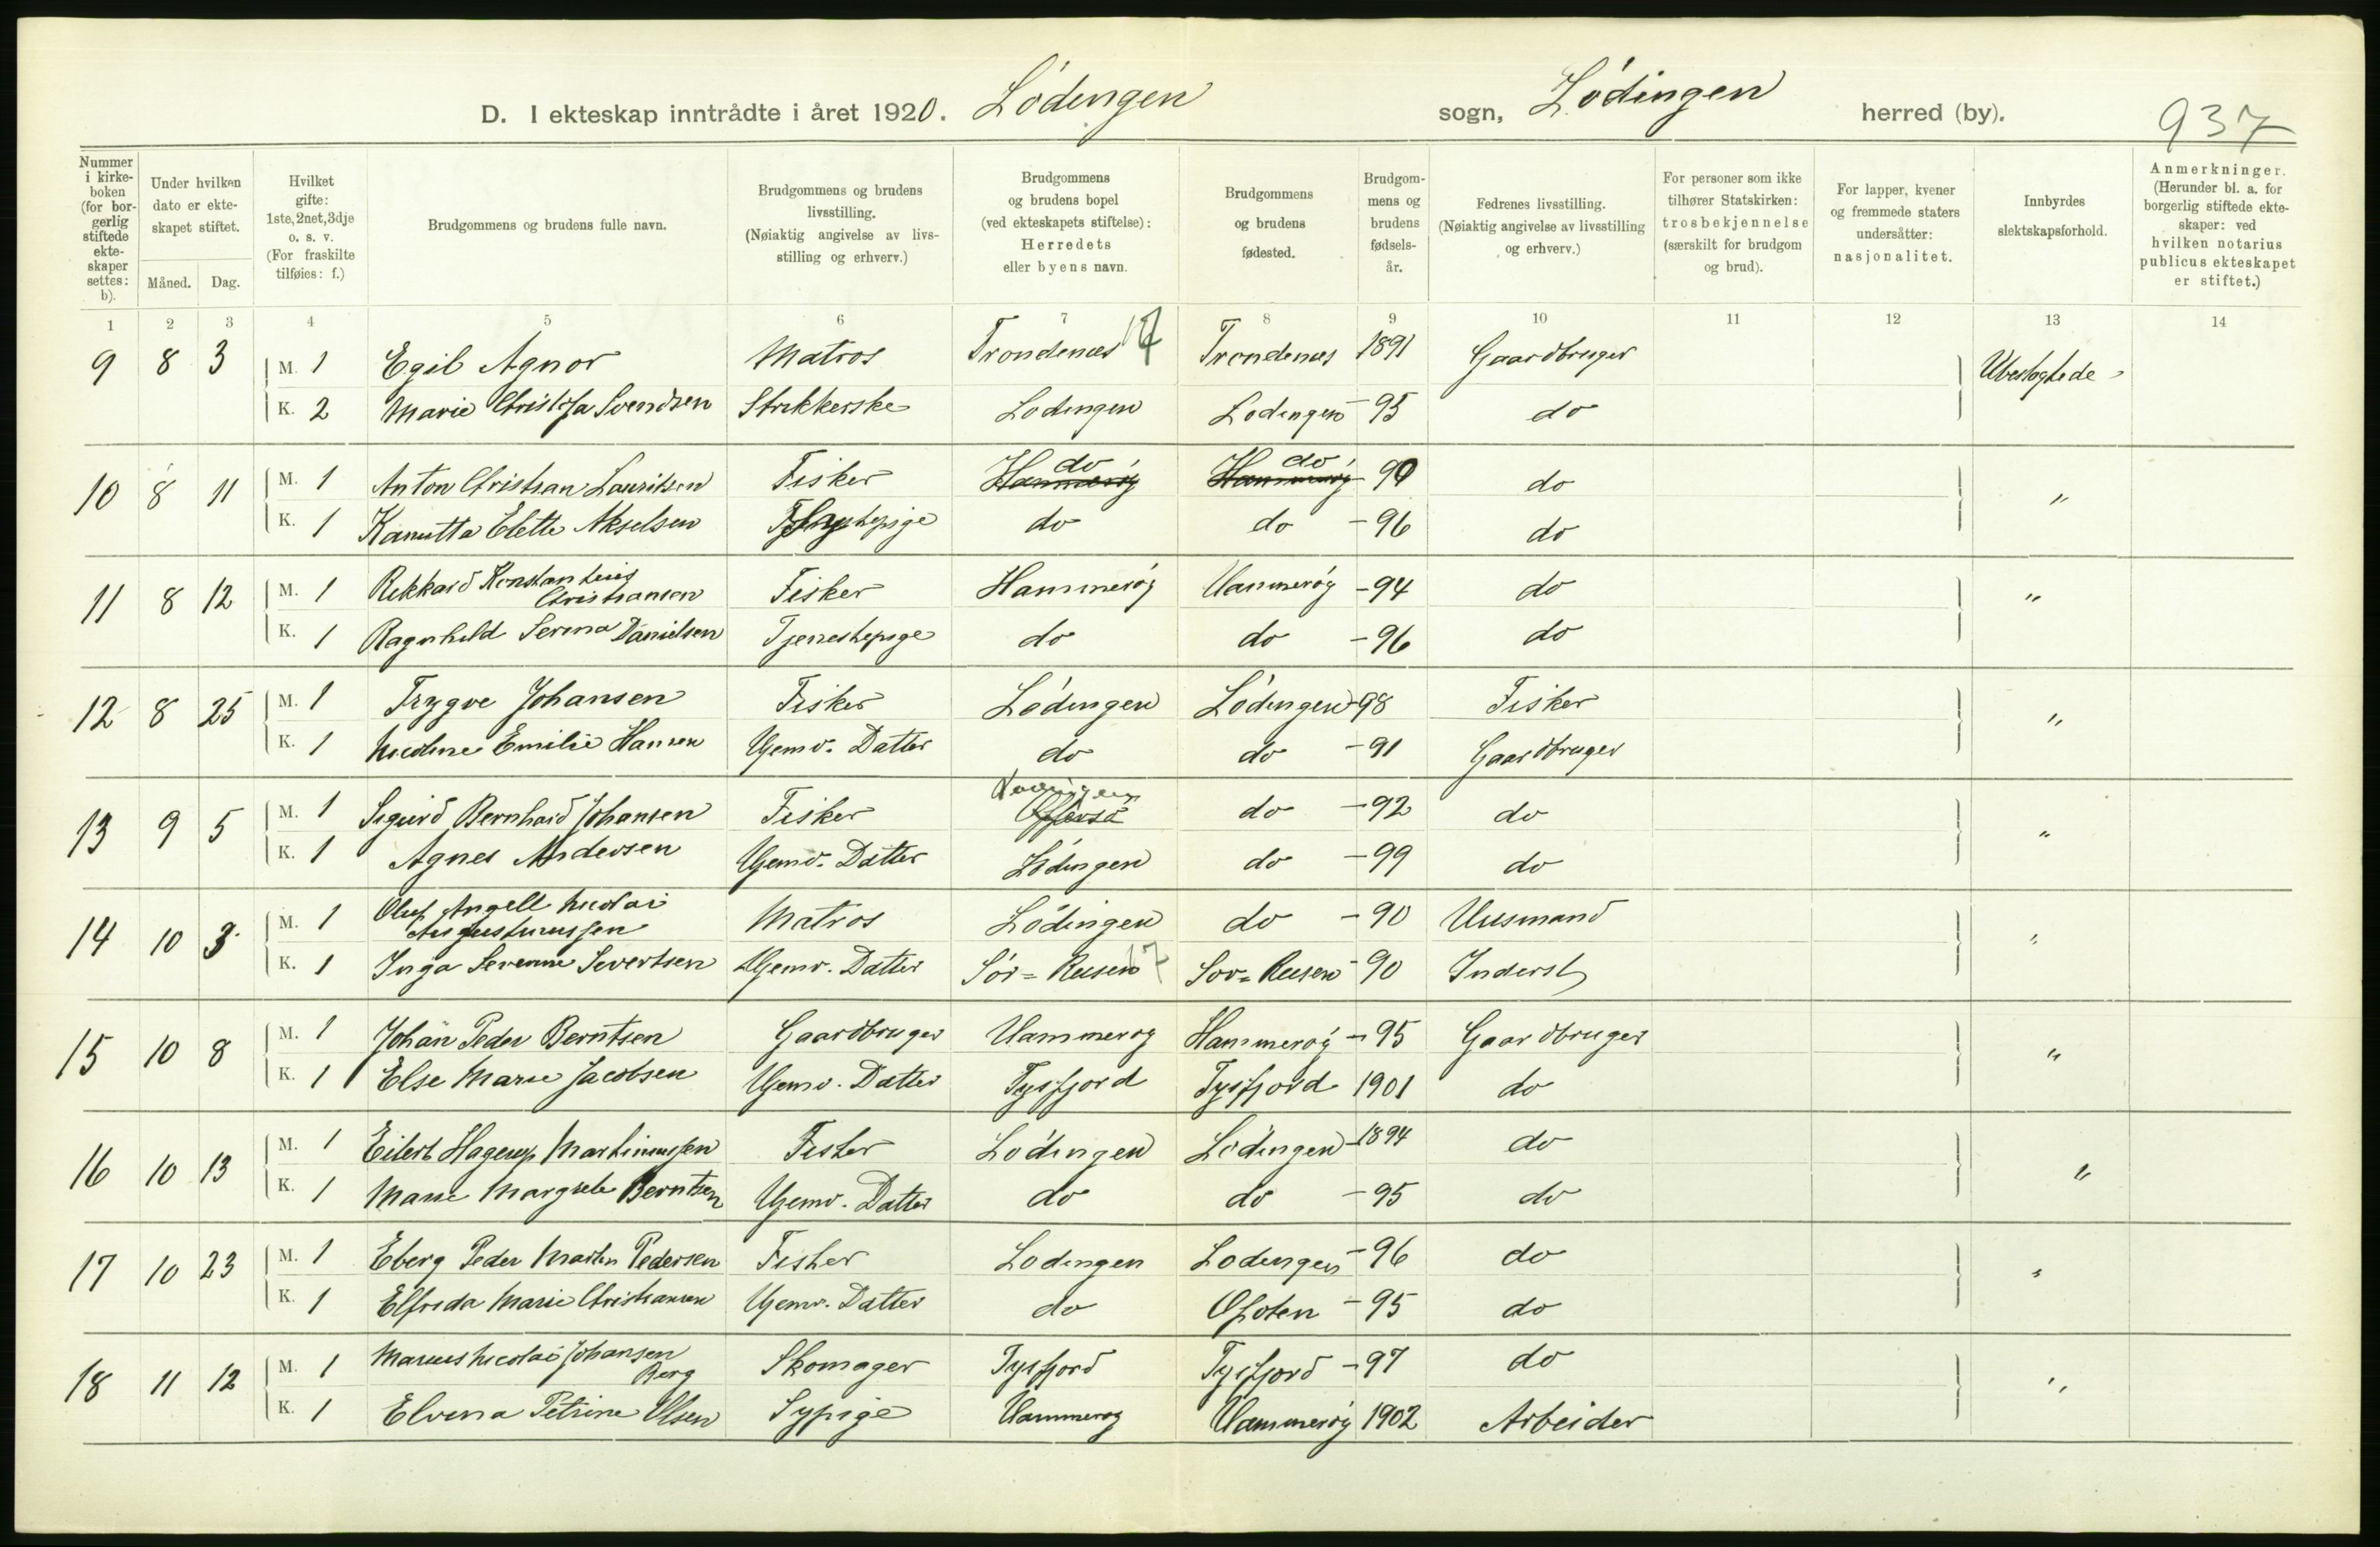 D. I ekteskap inntrådte i året 1920. Lödingen sogn, Lödingen herred (by). 937
Nummer i kirkeboken (for borgerlig stiftede ekteskaper settes: b).
Under hvilken dato er ekteskapet stiftet.
Måned. Dag.
Hvilket gifte: 1ste, 2net, 3dje o. s. v. (For fraskilte tilføies: f.)
Brudgommens og brudens fulle navn.
Brudgommens og brudens livsstilling. (Nøiaktig angivelse av livsstilling og erhverv.)
Brudgommens og brudens bopel (ved ekteskapets stiftelse): Herredets eller byens navn.
Brudgommens og brudens fødested.
Brudgommens og brudens fødselsår.
Fedrenes livsstilling. (Nøiaktig angivelse av livsstilling og erhverv.)
For personer som ikke tilhører Statskirken: trosbekjennelse (særskilt for brudgom og brud).
For lapper, kvener og fremmede staters undersåtter: nasjonalitet.
Innbyrdes slektskapsforhold.
Anmerkninger. (Herunder bl. a. for borgerlig stiftede ekteskaper: ved hvilken notarius publicus ekteskapet er stiftet.)
1 2 3 4 5 6 7 8 9 10 11 12 13 14
9 8 3 M. 1 Egil Agnor Matros Trondenæs 17 Trondenæs 1891 Gaardbruger Ubeslægtede
K. 2 Marie Christofa Svendsen Strikkerske Lodingen Lodingen - 95 do
10 8 11 M. 1 Anton Christian Lauritsen Fisker Hammeröy do Hammeröy do - 90 do "
K. 1 Kanutta Elette Akselsen do do - 96 do
11 8 12 M. 1 Rikkard Konstantius Christiansen Fisker Hammeröy Hammeröy - 94 do "
K. 1 Ragnhild Serina Danielsen Tjenestepige do do - 96 do
12 8 25 M. 1 Trygve Johansen Fisker Lödingen Lödingen - 98 Fisker "
K. 1 Nicoline Emilie Hansen Hjemv. Datter do do - 91 Gaardbruger
13 9 5 M. 1 Sigurd Bernhard Johansen Fisker Lodingen do - 92 do "
K. 1 Agnes Andersen Hjemv. Datter Lödingen do - 99 do
14 10 3 M. 1 Oluf Angell Nicolai Augustinussen Matros Lödingen do - 90 Husmand "
K. 1 Inga Severine Severtsen Hjemv. Datter Sör=Reisen 17 Sor=Reisen - 90 Inderst
15 10 8 M. 1 Johan Peder Berntsen Gaardbruger Hammeröy Hammeröy - 95 Gaardbruger "
K. 1 Else Marie Jacobsen Hjemv. Datter Tysfjord Tysfjord 1901 do
16 10 13 M. 1 Eilert Hagerup Martinussen Fisker Lödingen Lödingen - 1894 do "
K. 1 Marie Margrete Berntsen Hjemv. Datter do do - 95 do
17 10 23 M. 1 Eberg Peder Martin Pedersen Fisker Lodingen Lodingen - 96 do "
K. 1 Elfrida Marie Christiansen Hjemv. Datter do Ofoten - 95 do
18 11 12 M. 1 Marius Nicolai Johansen Berg Skomager Tysfjord Tysfjord - 97 do "
K. 1 Elvina Petrine Olsen Sypige Hammeröy Hammeröy 1902 Arbeider